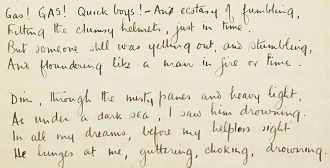 Gas! GAS! Quick boys! – An ecstasy of fumbling,
Fitting the clumsy helmets, just in time.
But someone still was yelling out, and stumbling,
And floundering like a man in fire or lime.
Dim, through the misty panes and heavy light,
As under a dark sea, I saw him drowning.
In all my dreams, before my helpless sight
He lunges at me, guttering, choking, drowning.